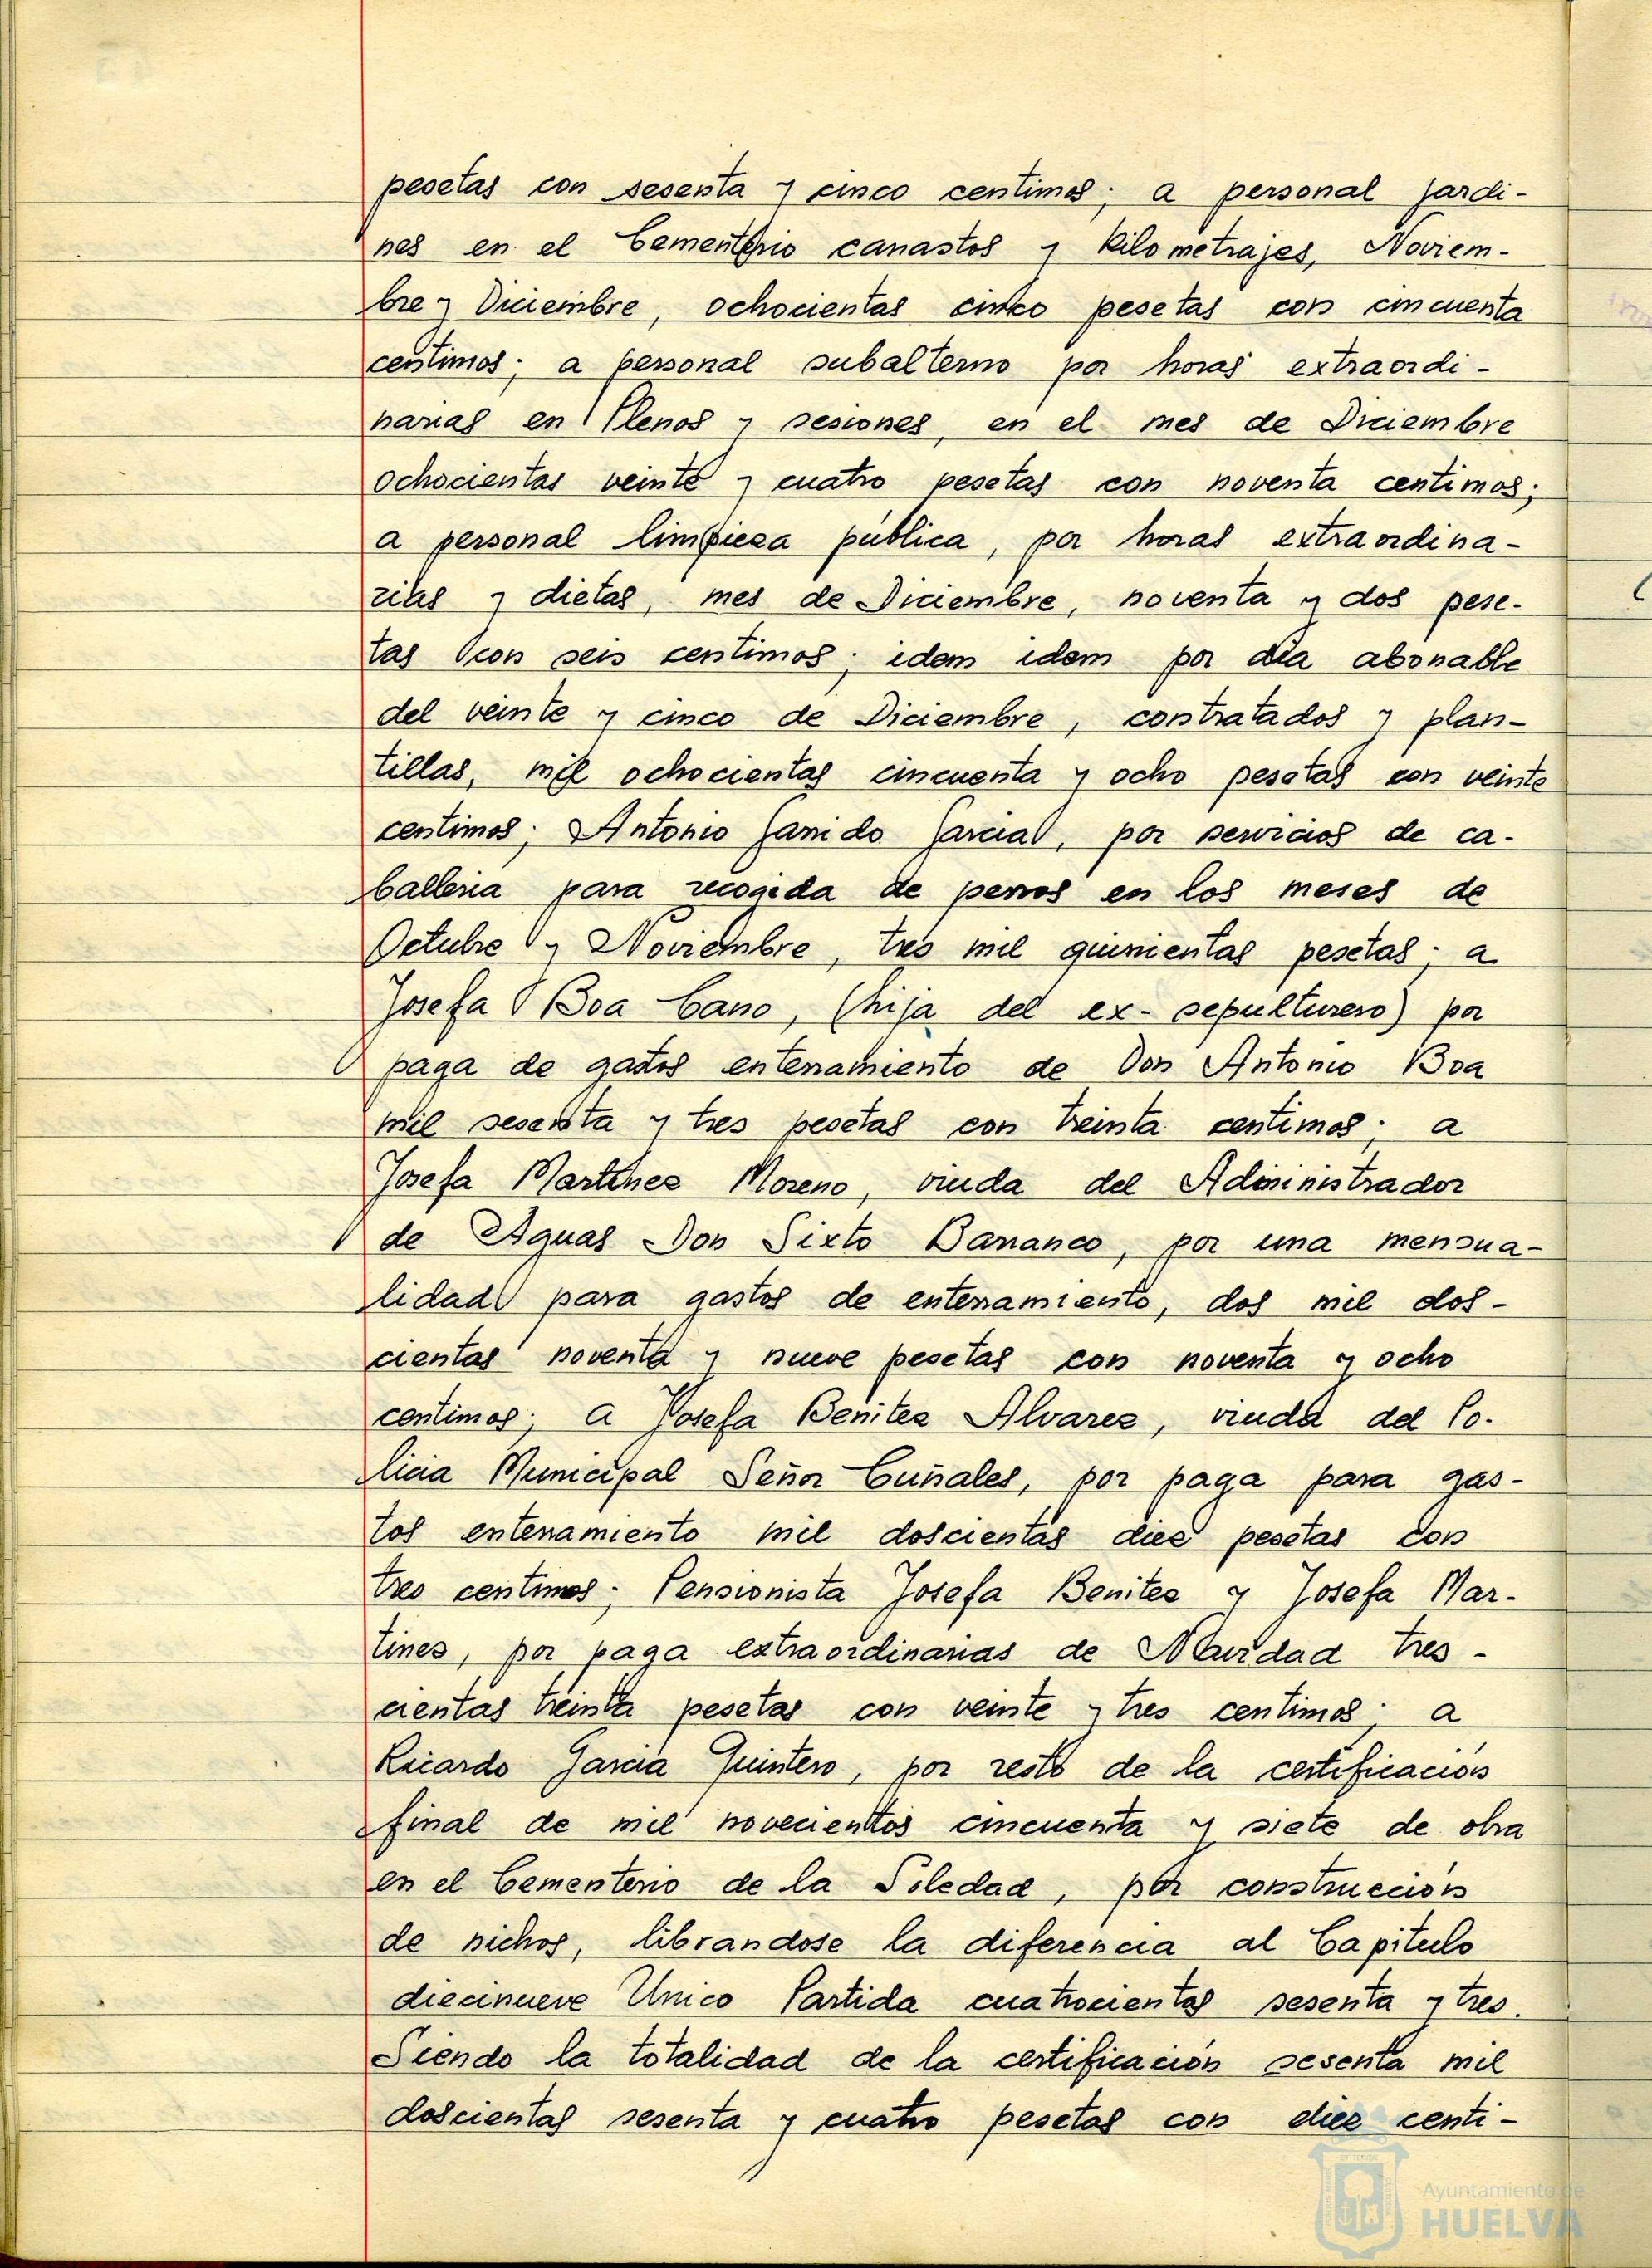 pesetas con sesenta y cinco centimos; a personal jardi-
nes en el Cementerio canastos y kilometrajes, Noviem-
bre y Diciembre, ochocientas cinco pesetas con cincuenta
centimos; a personal subalterno por horas extraordi-
narias en Plenos y sesiones, en el mes de Diciembre
ochocientas veinte y cuatro pesetas con noventa centimos;
a personal limpieza pública, por horas extraordina-
rias y dietas, mes de Diciembre, noventa y dos pese-
tas con seis centimos; idem idem por dia abonable
del veinte y cinco de Diciembre, contratados y plan-
tillas, mil ochocientas cincuenta y ocho pesetas con veinte
centimos; Antonio Garrido Garcia, por servicios de ca-
balleria para recogida de perros en los meses de
Octubre y Noviembre, tres mil quinientas pesetas; a
Josefa Boa Cano, (hija del ex-sepulturero) por
paga de gastos enterramiento de Don Antonio Boa
mil sesenta y tres pesetas con treinta centimos; a
Josefa Martinez Moreno, viuda del Administrador
de Aguas Don Sixto Barranco, por una mensua-
lidad para gastos de enterramiento, dos mil dos-
cientas noventa y nueve pesetas con noventa y ocho
centimos; a Josefa Benitez Alvarez, viuda del Po-
licia Municipal Señor Cuñales, por paga para gas-
tos enterramiento mil doscientas diez pesetas con
tres centimos; Pensionista Josefa Benitez y Josefa Mar-
tines, por paga extraordinarias de Navidad tres-
cientas treinta pesetas con veinte y tres centimos; a
Ricardo Garcia Quintero, por resto de la certificación
final de mil novecientos cincuenta y siete de obra
en el Cementerio de la Soledad, por construcción
de nichos, librandose la diferencia al Capitulo
diecinueve Unico Partida cuatrocientas sesenta y tres.
Siendo la totalidad de la certificación sesenta mil
doscientas sesenta y cuatro pesetas con diez centi-
Ayuntamiento de
HUELVA